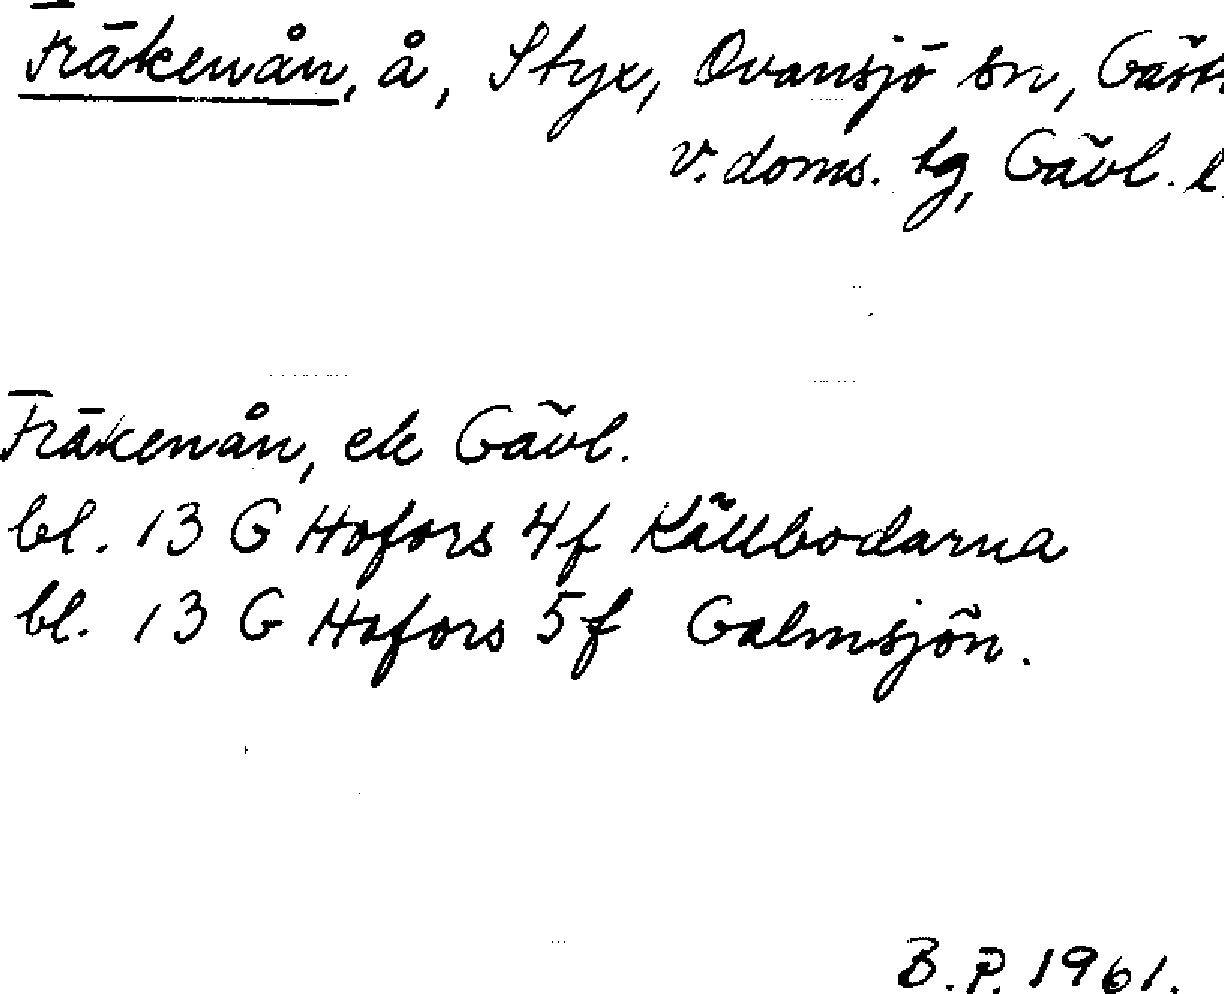 Fräkenån, å, Styx, Ovansjö sn, Gästr.
v. doms. tg, Gävl. l.
Fräkenån, ek Gävl.
bl. 13 G Hofors 4f Källbodarna
bl. 13 G Hofors 5f Galmsjön.
B.P. 1961.